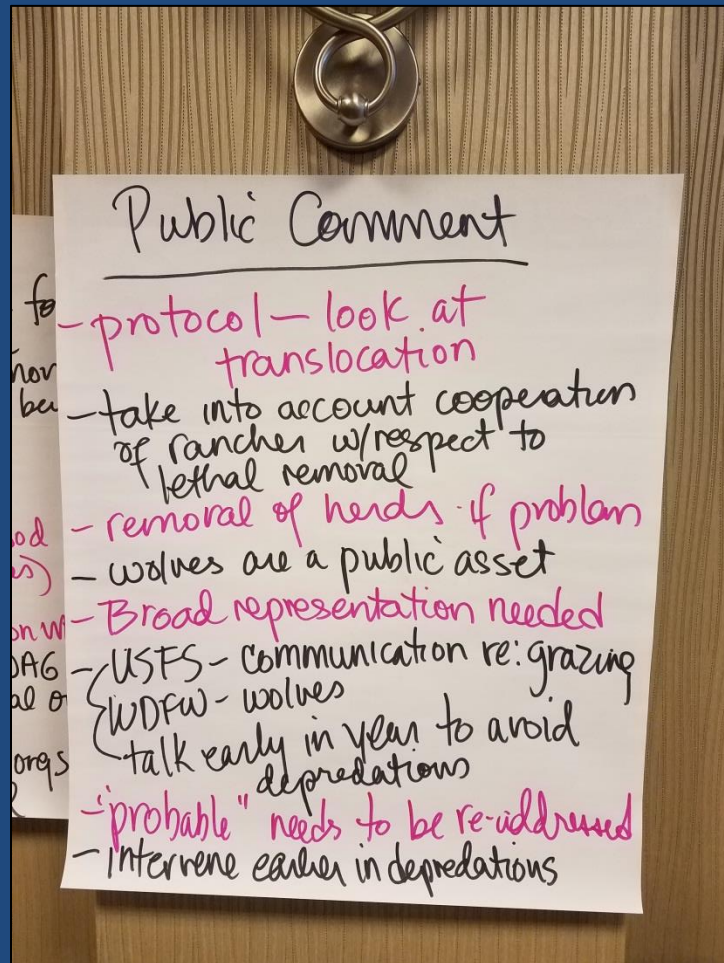 Public Comment
- protocol - look at
translocation
- take into account cooperation
of rancher w/respect to
lethal removal
- removal of herds if problem
- wolves are a public asset
- Broad representation needed
- USFS - communication re: grazing
WDFW - wolves
talk early in year to avoid
depredations
- "probable" needs to be re-addressed
- intervene earlier in depredations
fo
bei
od
s)
on w
AG
al o
orgs